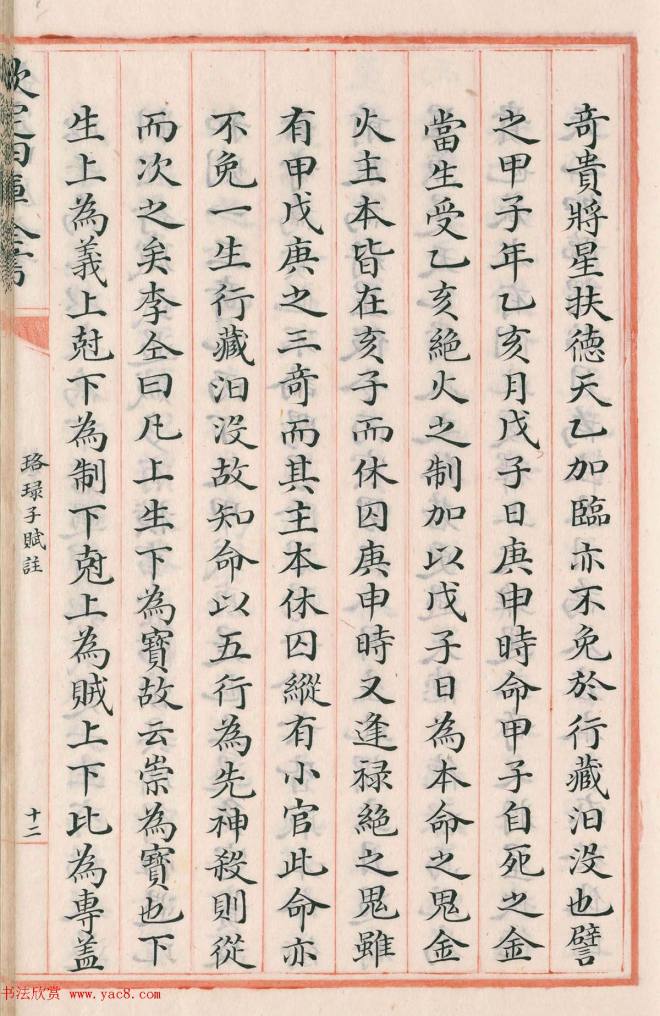 奇貴將星扶德天乙加臨亦不免於行藏汩没也譬
之甲子年乙亥月戊子日庚申時命甲子自死之金
當生受乙亥絶火之制加以戊子日為本命之鬼金
火主本皆在亥子而休囚庚申時又逢禄絶之鬼雖
有甲戊庚之三奇而其主本休囚縱有小官此命亦
不免一生行藏汩没故知命以五行為先神殺則從
而次之矣李仝曰凡上生下為寶故云崇為寶也下
生上為義上尅下為制下尅上為賊上下比為專盖
欽定四庫全書
珞琭子賦註
十二
书法欣赏 www.yac8.com